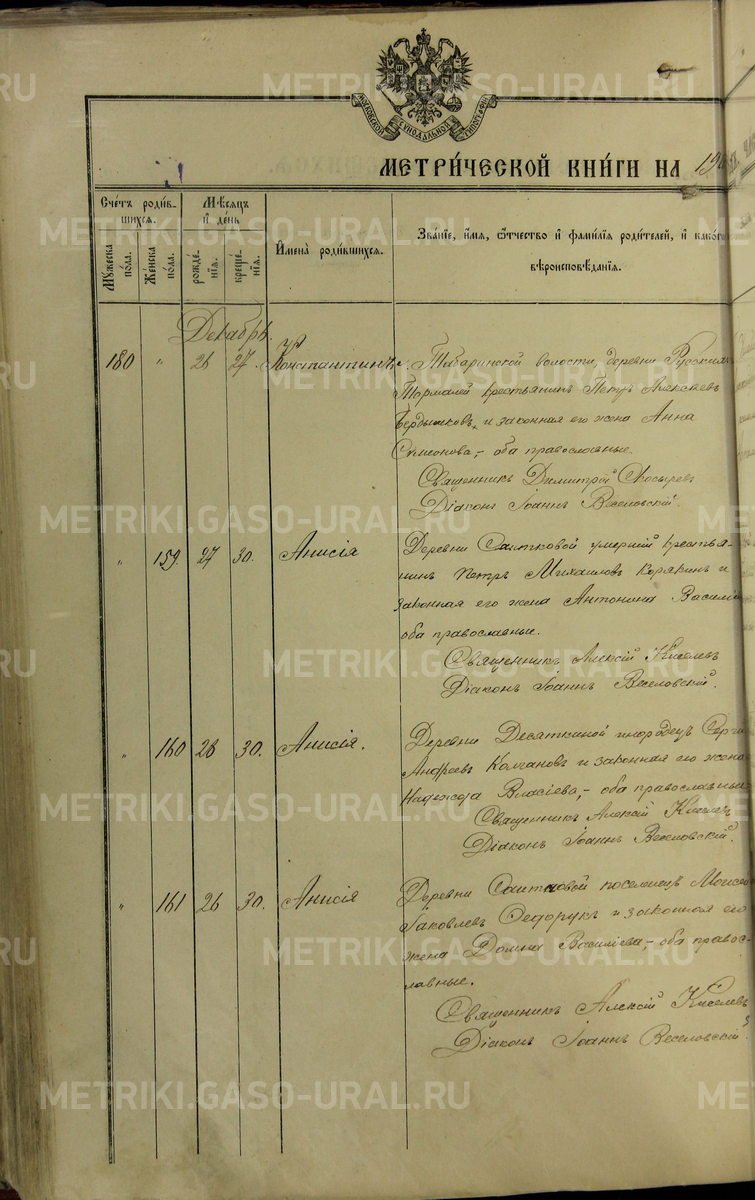 METRIKI.GASO-URAL.RU
МОСКОВСКОЙ СѴНОДАЛЬНОЙ ТИПОГРАФІИ
МЕТРИ́ЧЕСКОЙ КНИ́ГИ НА 19
Сче́тъ роди́в-
шихся.
Му́жеска по́ла.
Же́нска по́ла.
Мѣ́сяцъ и де́нь
рожде-
нія.
креще-
нія.
Имена̀ роди́вшихся.
Зва́ніе, и́мя, ѻ҆́тчество и фами́лія роди́телей, и како́гѡ
вѣроисповѣ́данія.
Декабрь.
180 " 26 27. Константинъ. Табаринской волости, деревни Русскихъ
Тормалей крестьянинъ Петръ Алексѣевъ
Бердышковъ, и законная его жена Анна
Симеонова, - оба православные.
Священникъ Димитрій Скосыревъ
Діаконъ Іоаннъ Веселовскій.
" 159. 27 30. Анисія Деревни Саитковой умершій кресть-
нинъ Петръ Михаиловъ Корякинъ и
законная его жена Антонина Василі
оба православные.
Священникъ Алексій Киселевъ
Діаконъ Іоаннъ Веселовскій.
" 160 28 30. Анисія. Деревни Десяткиной инородецъ Серг
Андреевъ Колчановъ и законная его жена
Надежда Власіева, - оба православные
Священникъ Алексій Киселев
Діаконъ Іоаннъ Веселовскій.
" 161 26 30. Анисія Деревни Саитковой поселенецъ Моисей
Іаковлевъ Федорукъ и законная его
жена Домна Василіева, - оба правос-
лавные.
Священникъ Алексій Киселевъ
Діаконъ Іоаннъ Веселовскій